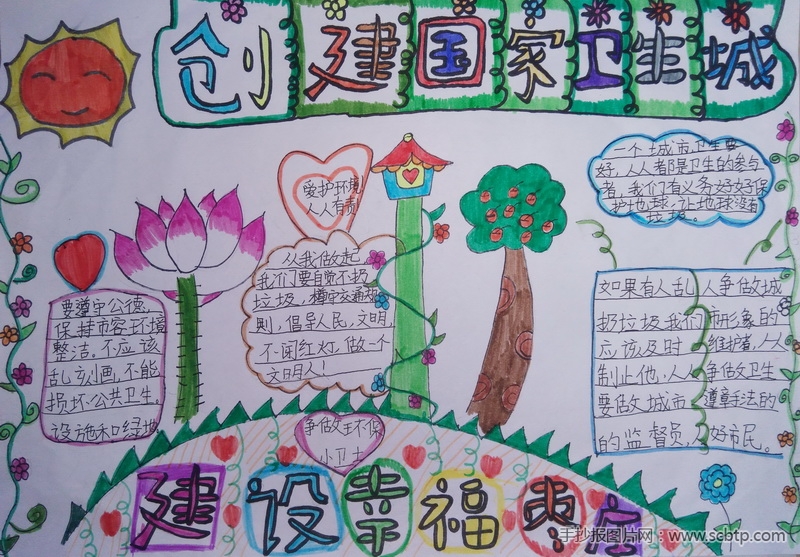 创建国家卫生城
爱护环境
人人有责
一个城市卫生要
好,人人都是卫生的参与
者,我们有义务好好保
护地球,让地球没有
垃圾。
要遵守公德,
保持市容环境
整洁。不应该
乱刻画,不能
损坏公共卫生
设施和绿地
从我做起,
我们要自觉不扔
垃圾,遵守交通规
则,倡导人民,文明,
不闯红灯,做一个
文明人!
如果有人乱
扔垃圾我们
应该及时
制止他,人
要做城市
的监督员,
人争做城
市形象的
维护者,人人
争做卫生
遵章守法的
好市民。
争做环保
小卫士
建设幸福枣庄
手抄报图片网:www.scbtp.com